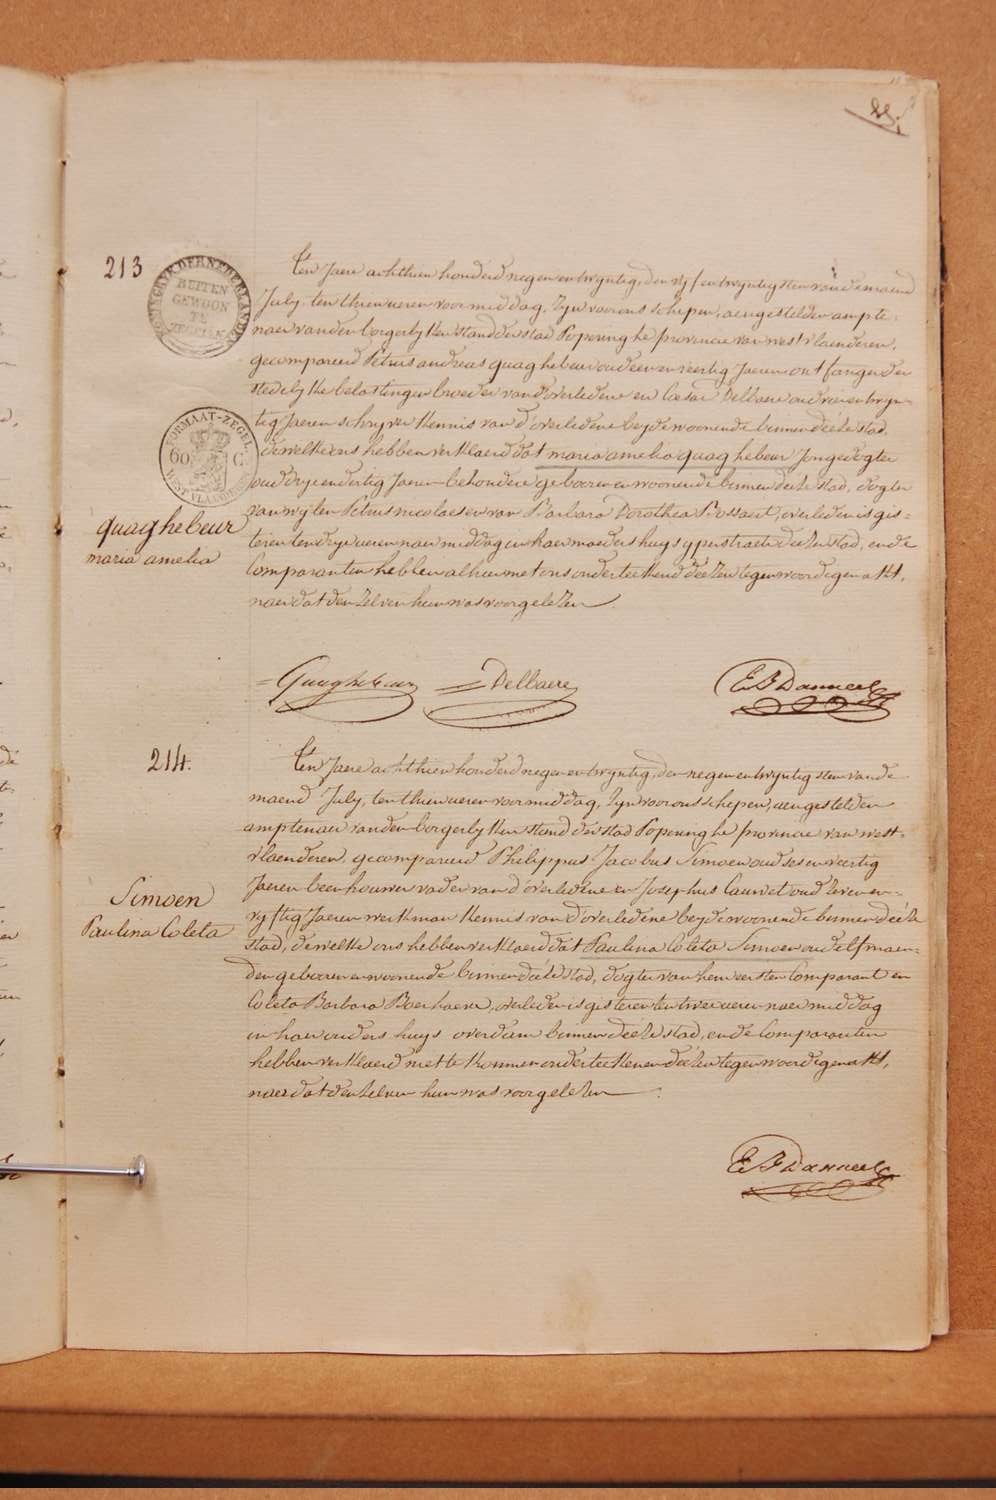 213
KONINGRYK DER NEDERLANDEN
BUITEN
GEWOON
TE
ZEGELEN
Ten Jaere achthien honderd negen en twyntig, den vyf en twyntigsten van de maend
July, ten thien ueren voormiddag, zyn voor ons schepen, aengestelden ampte-
naer van den borgerlyken stand der stad Poperinghe provincie van westvlaenderen,
gecompareerd Petrus andreas quaghebeur oud een en veertig Jaeren ontfanger der
stedelyke belastingen broeder van d'overledene en Cæsar Delbaere oud vier en twyn-
tig Jaeren schryver kennis van d'overledene beyde woonende binnen deéze stad,
dewelke ons hebben verklaerd dat maria amelia quaghebeur Jongedogter
oud dry en dertig Jaeren behoudere geboren en woonende binnen deéze stad, dogter
van wylen Petrus nicolaes en van Barbara Dorothea Bossaert, overleden is gis-
teren ten dry ueren naermiddag in haer moeders huys yperstraete deézer stad, en de
Comparanten hebben alhier met ons onderteekend deézen tegenwoordigen akt,
naer dat den zelven heun was voorgelezen.
FORMAAT-ZEGEL
60 C
WEST-VLAANDEREN
quaghebeur
maria amelia
Quaghebeur Delbaere E B Danneel
214.
Ten Jaere achthien honderd negen en twyntig, den negen en twyntigsten van de
maend July, ten thien ueren voormiddag, zyn voor ons schepen, aengestelden
amptenaer van den borgerlyken stand der stad Poperinghe provincie van west-
vlaenderen, gecompareerd Philippus Jacobus Simoen oud ses en veertig
Jaeren beenhouwer vader van d'overledene en Josephus Cauwet oud zeven en
vyftig Jaeren werkman kennis van d'overledene beyde woonende binnen deéze
stad, dewelke ons hebben verklaerd dat Paulina Coleta Simoen oud elf maen-
den geboren en woonende binnen deéze stad, dogter van hem eersten Comparant en
Coleta Barbara Boerhaeve, overleden is gisteren ten twee ueren naermiddag
in haer ouders huys overdam binnen deéze stad, en de Comparanten
hebben verklaerd niet te konnen onderteekenen deézen tegenwoordigen akt,
naer dat den zelven heun was voorgelezen.
Simoen
Paulina Coleta
E B Danneel